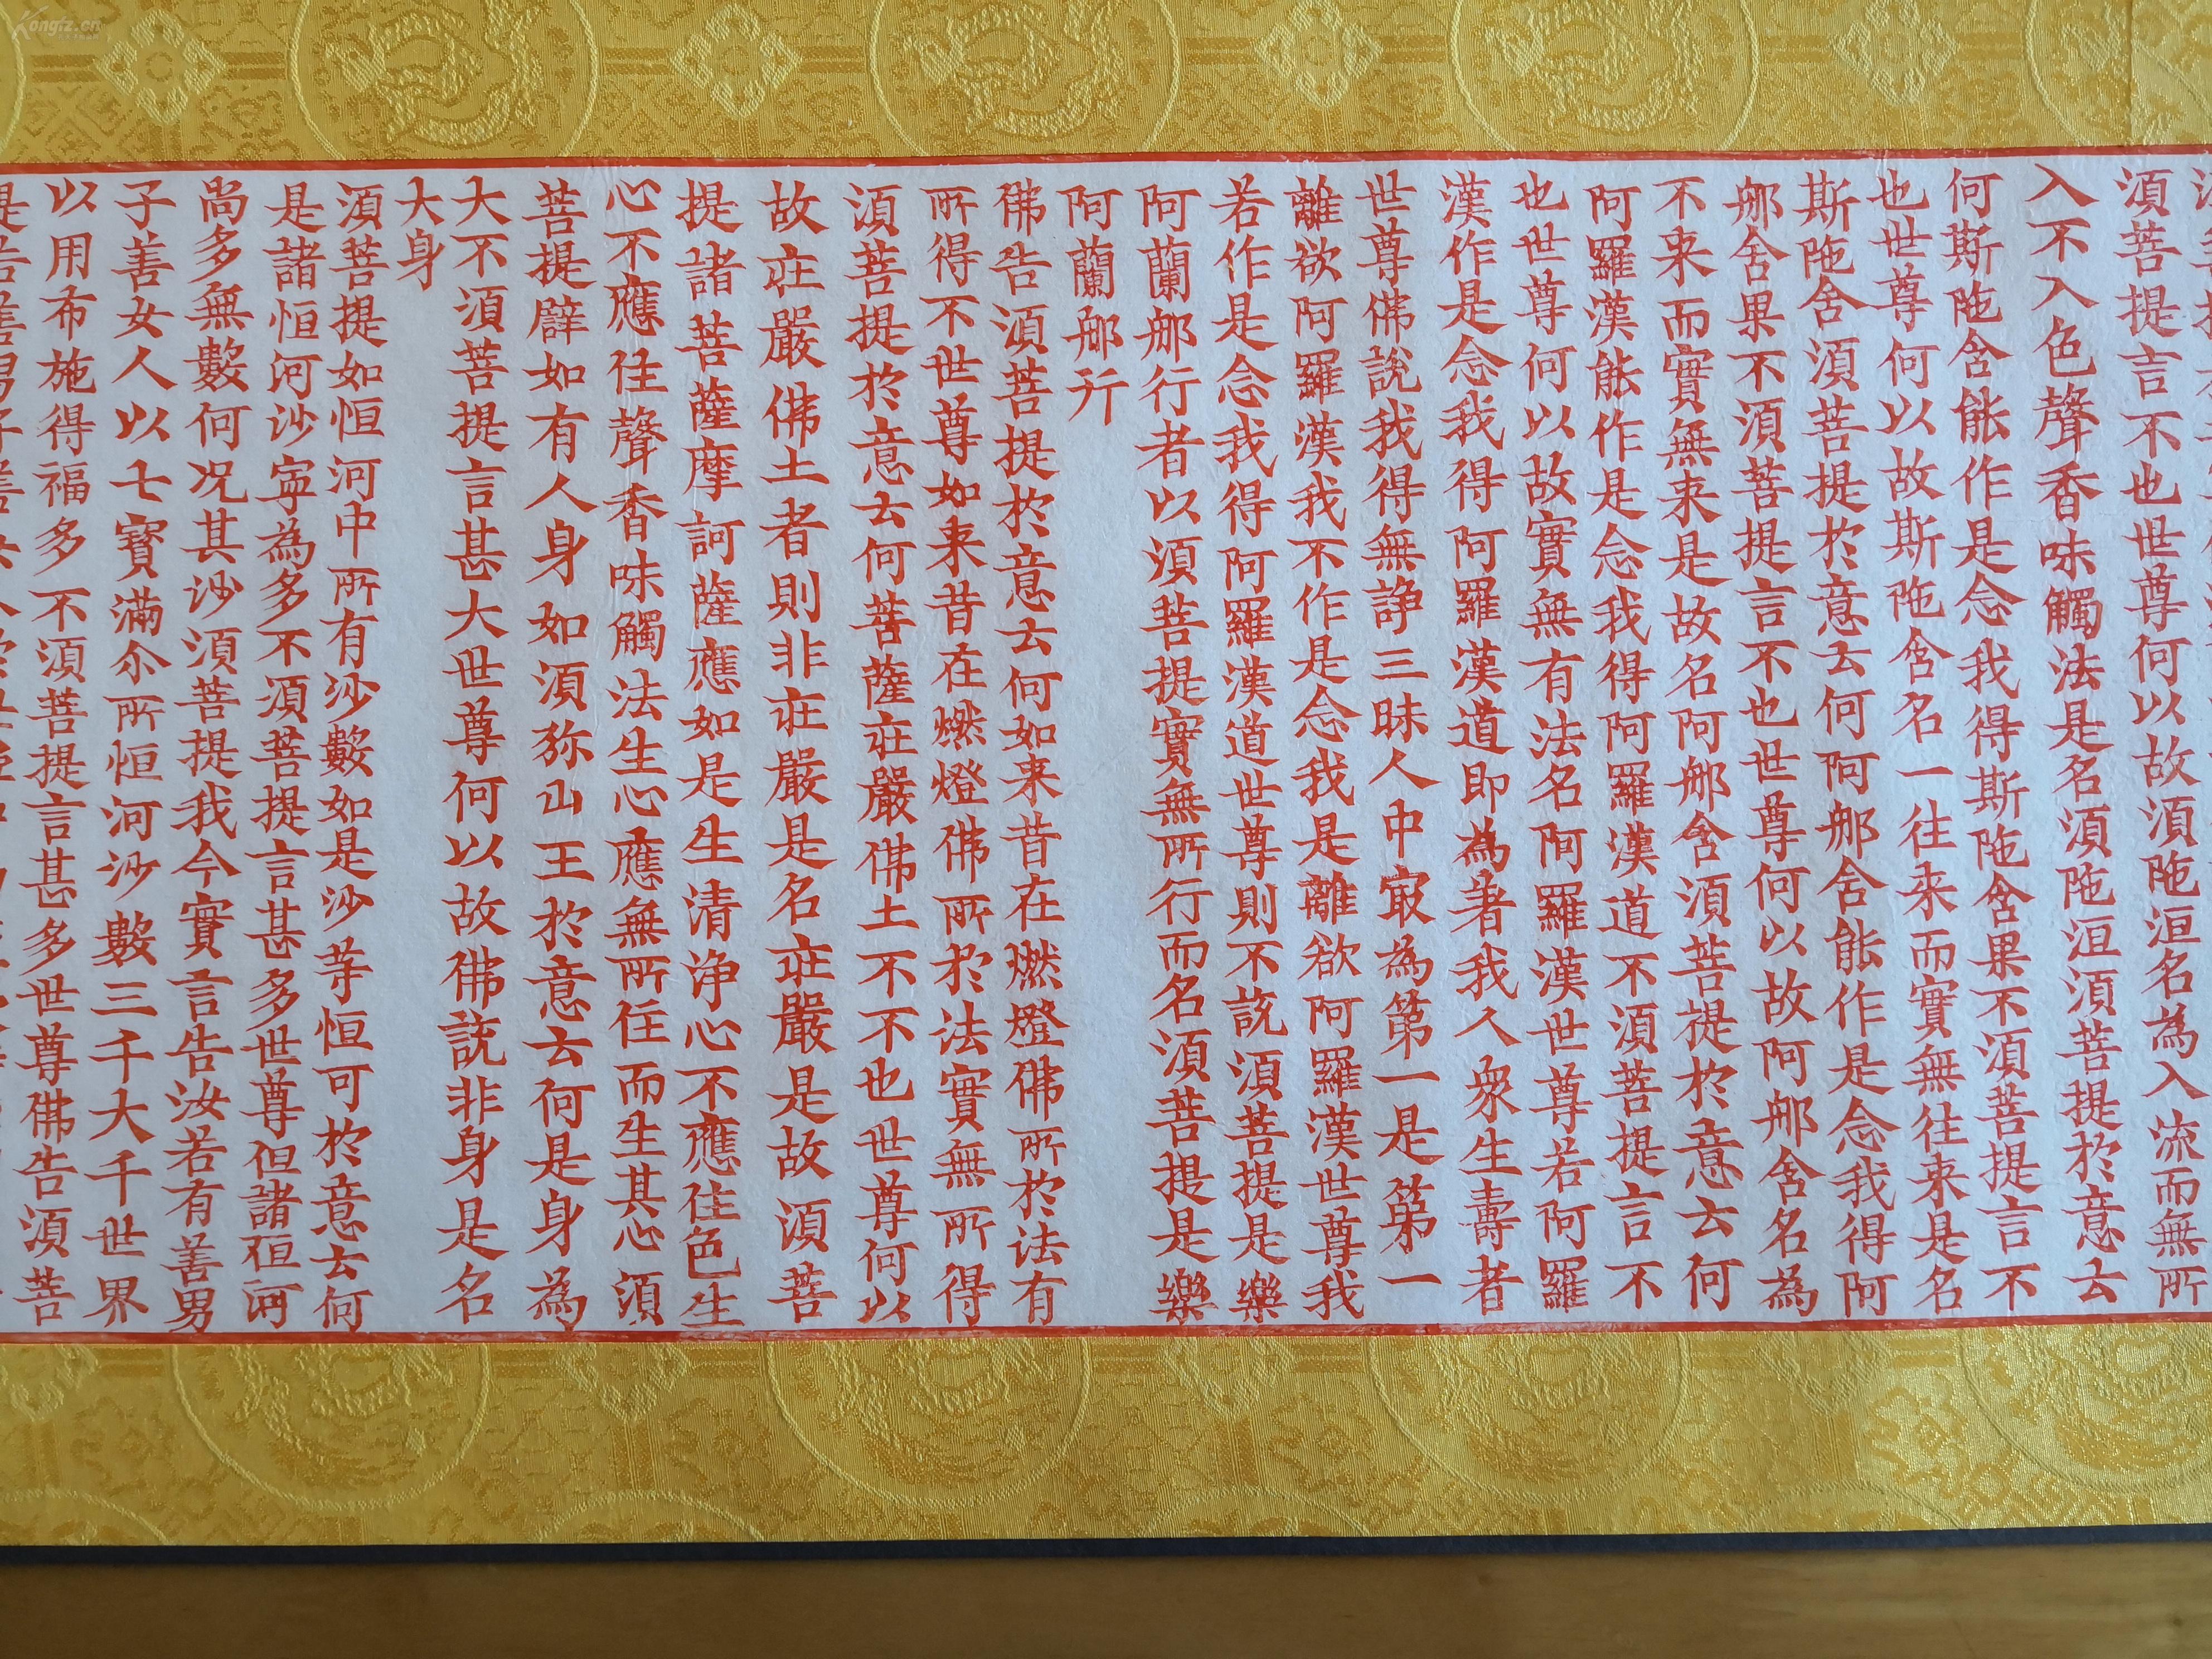 須菩提言不也世尊何以故須陁洹名為入流而無所
入不入色聲香味觸法是名須陁洹須菩提於意云
何斯陁含能作是念我得斯陁含果不須菩提言不
也世尊何以故斯陁含名一往来而實無往来是名
斯陁含須菩提於意云何阿那含能作是念我得阿
那含果不須菩提言不也世尊何以故阿那含名為
不来而實無来是故名阿那含須菩提於意云何
阿羅漢能作是念我得阿羅漢道不須菩提言不
也世尊何以故實無有法名阿羅漢世尊若阿羅
漢作是念我得阿羅漢道即為著我人衆生壽者
世尊佛說我得無諍三昧人中寂為第一是第一
離欲阿羅漢我不作是念我是離欲阿羅漢世尊我
若作是念我得阿羅漢道世尊則不說須菩提是樂
阿蘭那行者以須菩提實無所行而名須菩提是樂
阿蘭那行
佛告須菩提於意云何如来昔在燃燈佛所於法有
所得不世尊如来昔在燃燈佛所於法實無所得
須菩提於意云何菩薩莊嚴佛土不不也世尊何以
故莊嚴佛土者則非莊嚴是名莊嚴是故須菩
提諸菩薩摩訶薩應如是生清淨心不應住色生
心不應住聲香味觸法生心應無所住而生其心須
菩提譬如有人身如須弥山王於意云何是身為
大不須菩提言甚大世尊何以故佛說非身是名
大身
須菩提如恒河中所有沙數如是沙等恒河於意云何
是諸恒河沙寧為多不須菩提言甚多世尊但諸恒河
尚多無數何况其沙須菩提我今實言告汝若有善男
子善女人以七寳滿尒所恒河沙數三千大千世界
以用布施得福多不須菩提言甚多世尊佛告須菩